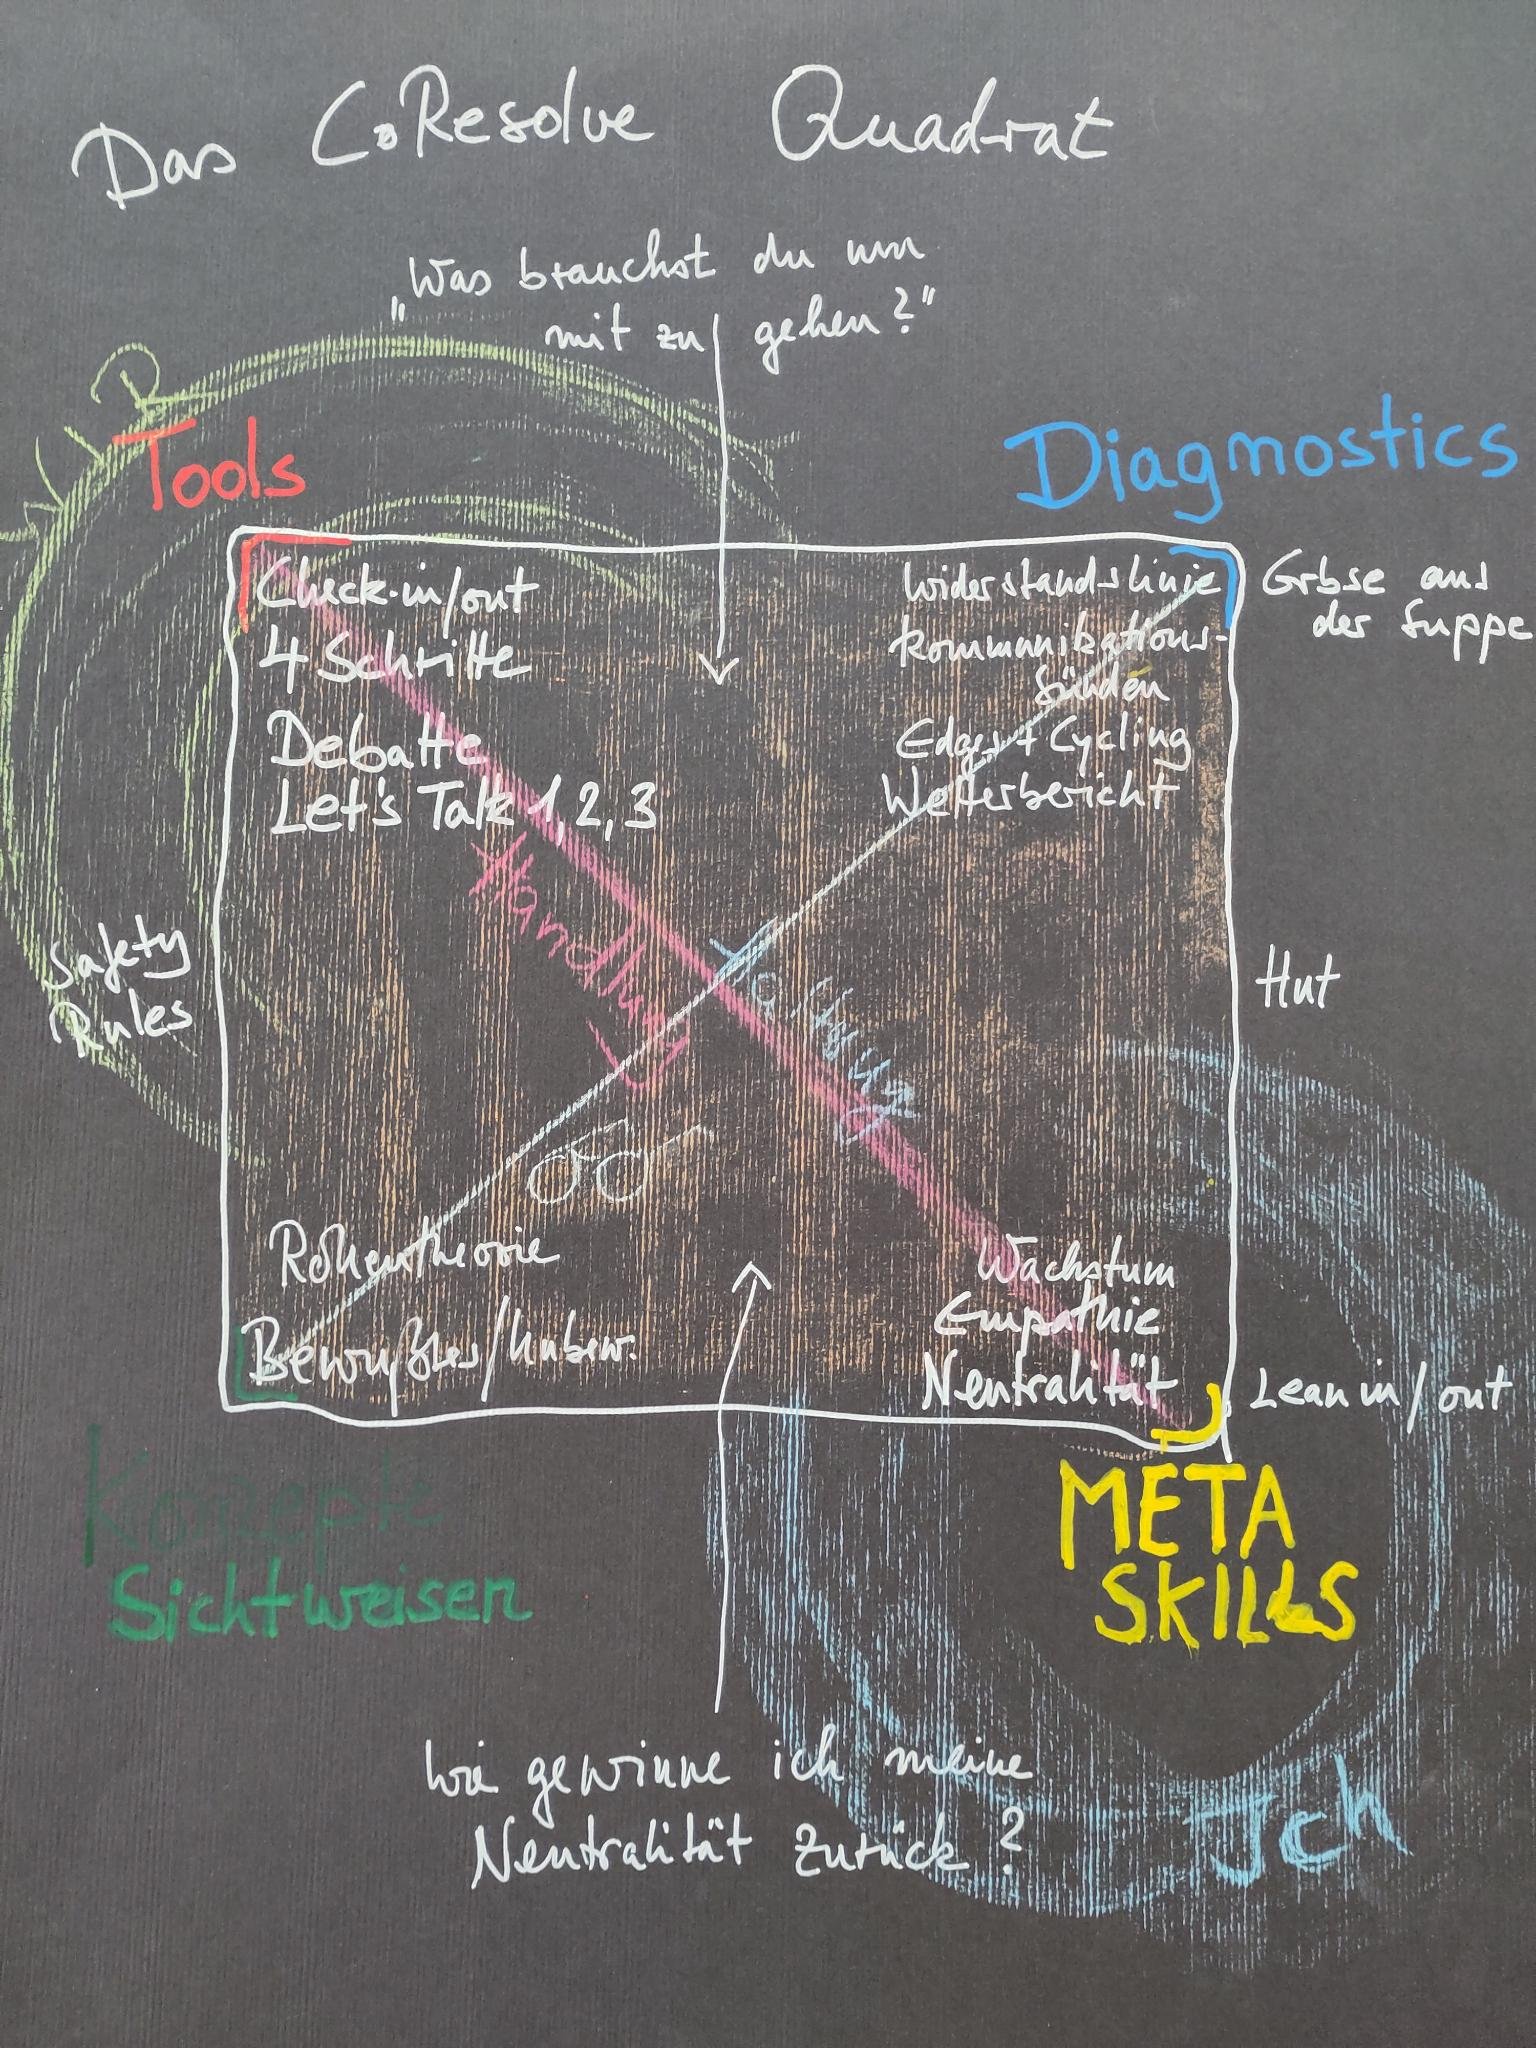 Das CoResolve Quadrat
„Was brauchst du um
mit zu gehen?"
WIR
Tools
Diagnostics
Check-in/out
4 Schritte
Debatte
Let's Talk 1, 2, 3
Widerstandslinie
Kommunikations-
sünden
Edges + Cycling
Wetterbericht
Erbse aus
der Suppe
Handlung
Haltung
Safety
Rules
Hut
Rollentheorie
Bewußtes/Unbew.
Wachstum
Empathie
Neutralität
Lean in/out
Konzepte
Sichtweisen
META
SKILLS
Wie gewinne ich meine
Neutralität zurück?
Ich